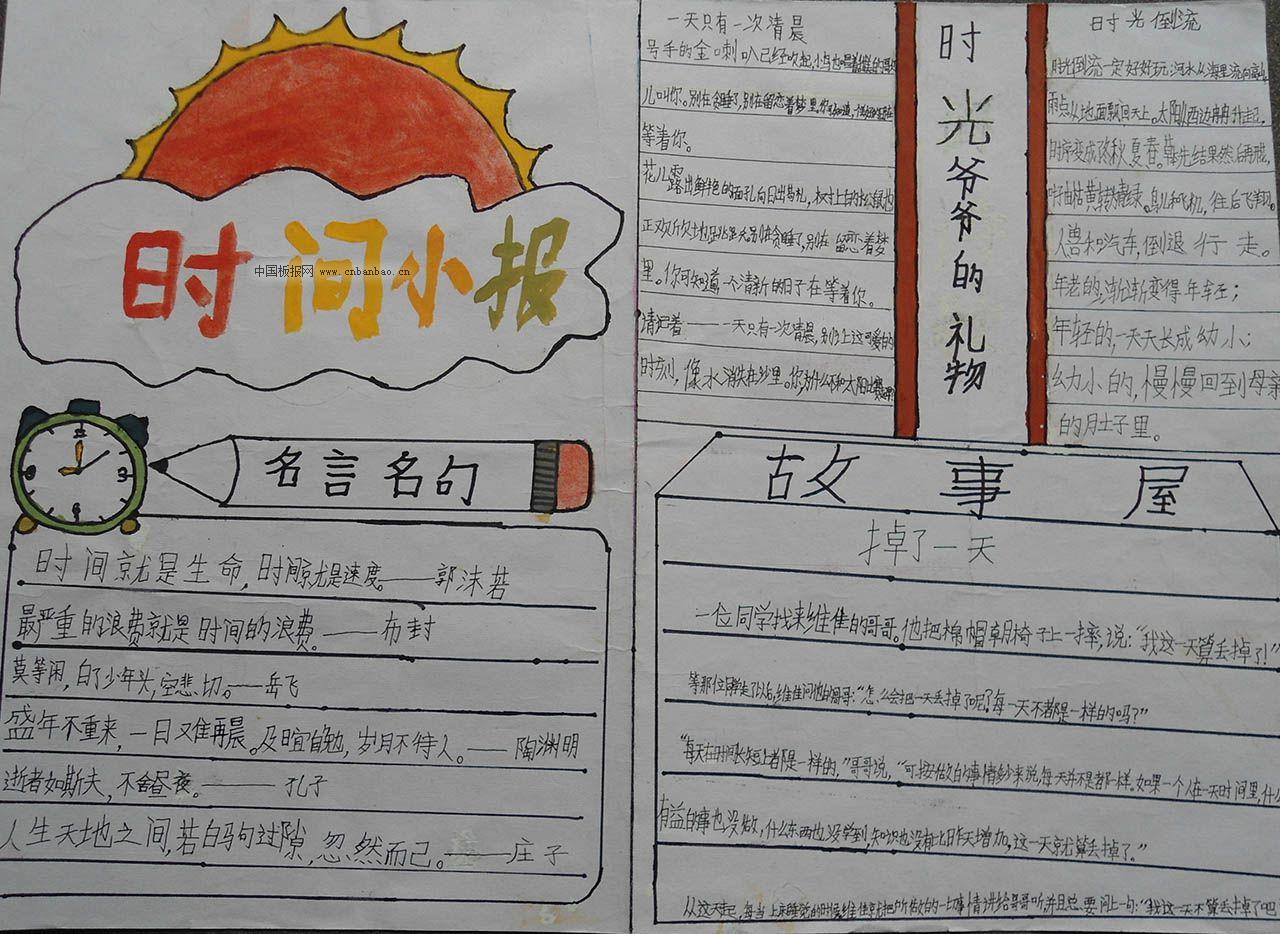 时间小报
中国板报网 www.cnbanbao.cn
名言名句
时间就是生命,时间就是速度。——郭沫若
最严重的浪费就是时间的浪费。——布封
莫等闲,白了少年头,空悲切。——岳飞
盛年不重来,一日又难再晨。及时宜自勉,岁月不待人。——陶渊明
逝者如斯夫,不舍昼夜。——孔子
人生天地之间,若白马句过隙,忽然而已。——庄子
一天只有一次清晨
号手的金喇叭已经吹起,小鸟也唱着
儿叫你。别在贪睡了,别在留恋着梦里,你可知道,
等着你。
花儿露出鲜艳的面孔向日出敬礼,枝树上的松鼠也
正欢欣欠地起,别在贪睡了,别在留恋着梦
里。你可知道,一个清新的日子在等着你。
请记着——一天只有一次清晨,别让这可爱的
时刻,像水消失在沙里。你为什么不和太阳比赛
时光爷爷的礼物
时光倒流
时光倒流一定好好玩:河水从海里流向高山,
雨点从地面飘回天上。太阳从西边冉冉升起,
时序变成冬秋夏春。先结果然后再开花,
叶由枯黄转青绿。鸟儿和飞机,往后飞翔,
人兽和汽车,倒退行走。
年老的,渐渐变得年轻;
年轻的,一天天长成幼小;
幼小的,慢慢回到母亲
的肚子里。
故事屋
掉了一天
一位同学找来维佳的哥哥。他把棉帽朝椅子上一摔,说:“我这一天算丢掉了!”
等那位同学走了以后,维佳问他的哥哥:“怎么会把一天丢掉了呢?每一天不都是一样的吗?”
“每天在时间长短上都是一样的,”哥哥说,“可按做的事情多少来说,每天并不是都一样。如果一个人在一天时间里,什么
有益的事也没做,什么东西也没学到,知识也没有比昨天增加,这一天就算丢掉了。”
从这天起,每当上床睡觉的时候,维佳就把所做的一切事情讲给哥哥听,并且总要问上一句:“我这一天不算丢掉了吧